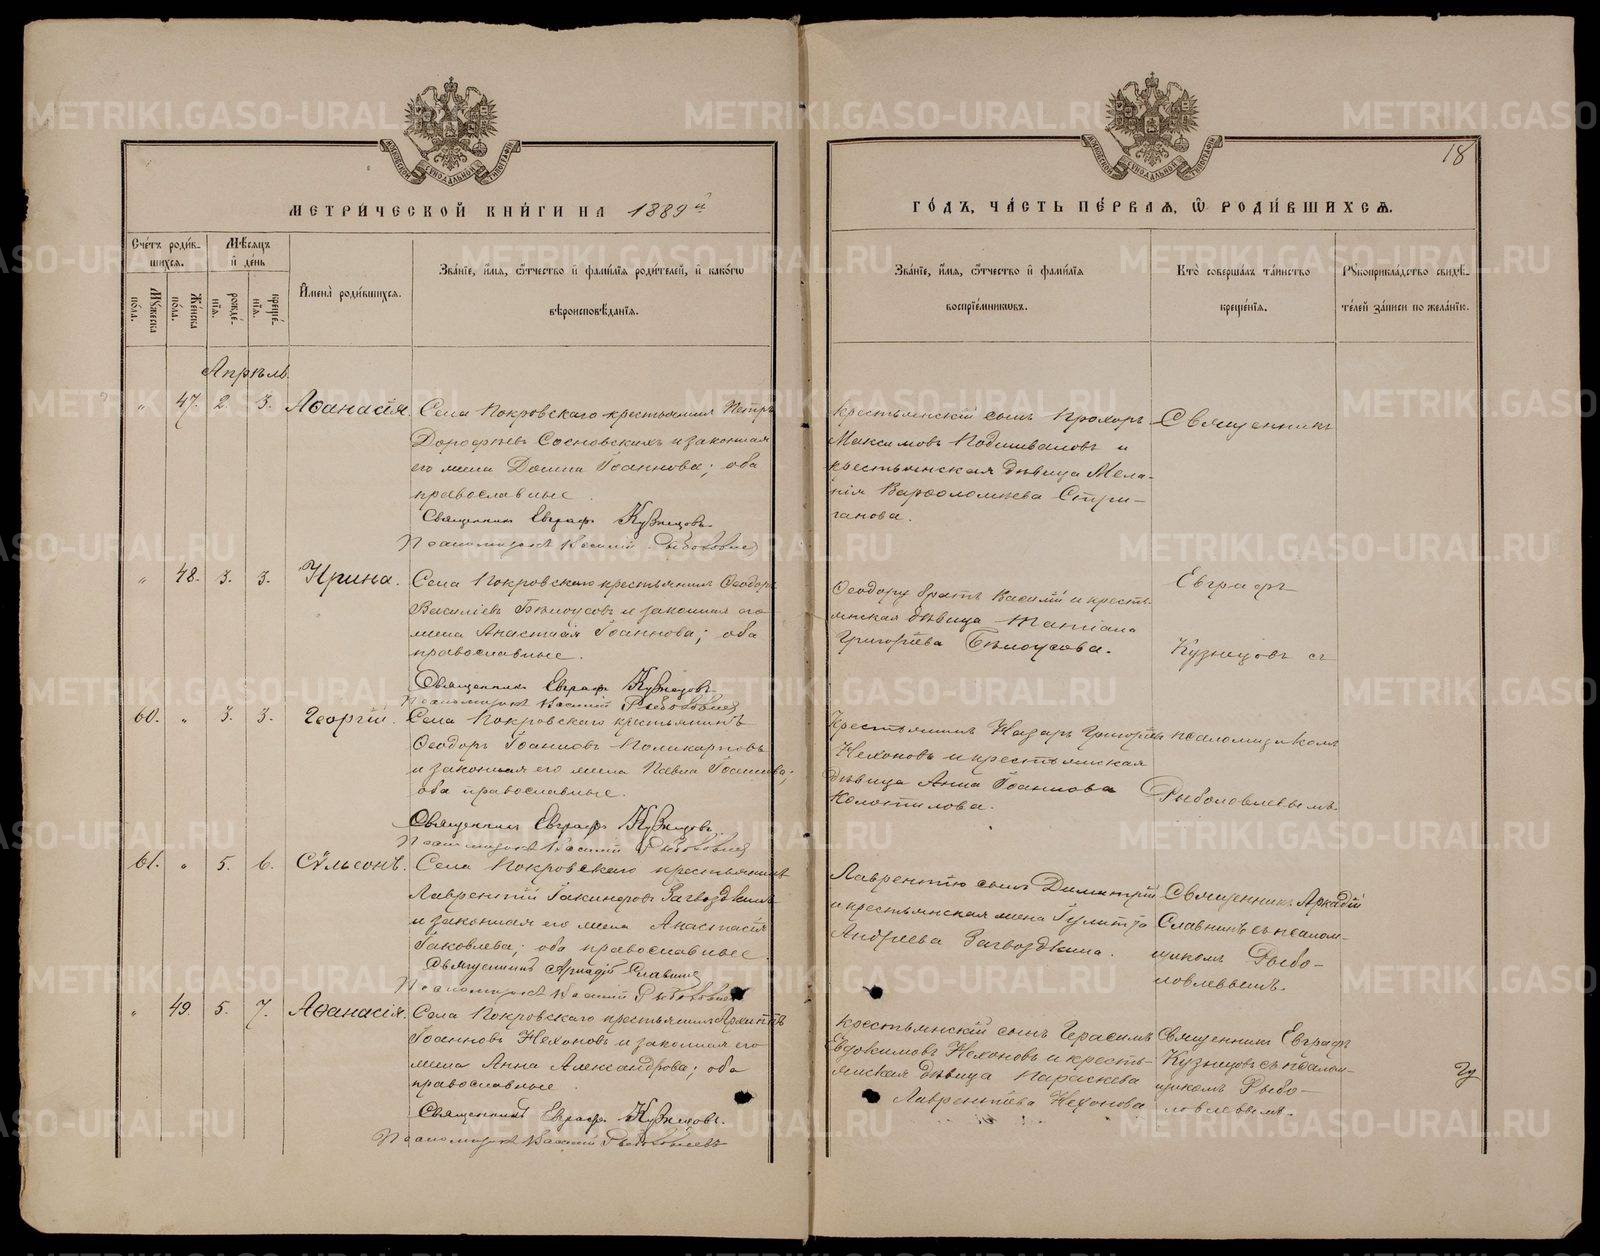 18
МЕТРИ́ЧЕСКОЙ КНИ́ГИ НА 1889 й
ГО́ДЪ, ЧА́СТЬ ПЕ́РВАЯ, Ѡ РОДИ́ВШИХСЯ.
Сче́тъ роди́в-
шихся.
Мꙋ́жеска
по́ла.
Же́нска
по́ла.
Мѣ́сяцъ
и҆ де́нь
рожде́-
нїя.
креще́-
нїя.
И҆мена̀ роди́вшихся.
Зва́нїе, и҆́мя, ѻ҆́тчество и҆ фами́лїя роди́телей, и҆ како́гѡ
вѣроисповѣ́данїя.
Зва́нїе, и҆́мя, ѻ҆́тчество и҆ фами́лїя
воспрїе́мникѡвъ.
Кто̀ соверша́лъ та́инство
креще́нїя.
Рꙋкоприкла́дство свидѣ́-
телей за́писи по жела́нїю.
Апрѣль.
" 47. 2. 3. Аѳанасія.
Села Покровскаго крестьянинъ Петръ
Дорофѣевъ Сосновскихъ и законная
его жена Домна Іоаннова; оба
православные.
Священникъ Евграфъ Кузнецовъ.
Псаломщикъ Василій Рыболовлевъ
Крестьянскій сынъ Прохоръ
Максимовъ Подшиваловъ и
крестьянская дѣвица Мела-
нія Варѳоломѣева Стри-
ганова.
Священникъ
" 48. 3. 3. Ирина.
Села Покровскаго крестьянинъ Ѳеодоръ
Василіевъ Бѣлоусовъ и законная его
жена Анастасія Іоаннова; оба
православные.
Священникъ Евграфъ Кузнецовъ
Псаломщикъ Василій Рыболовлевъ
Ѳеодору братъ Василій и кресть-
янская дѣвица Татіана
Григоріева Бѣлоусова.
Евграфъ
Кузнецовъ съ
60. " 3. 3. Георгій.
Села Покровскаго крестьянинъ
Ѳеодоръ Іоанновъ Поликарповъ
и законная его жена Павла Іоаннова;
оба православные.
Священникъ Евграфъ Кузнецовъ.
Псаломщикъ Василій Рыболовлевъ
Крестьянинъ Назаръ Григоріевъ
Нехоновъ и крестьянская
дѣвица Анна Іоаннова
Колотилова.
псаломщикомъ
Рыболовлевымъ
61. " 5. 6. Сѵльсонъ.
Села Покровскаго крестьянинъ
Лаврентій Іакинѳовъ Загвоздкинъ
и законная его жена Анастасія
Іаковлева; оба православные.
Священникъ Аркадій Славнинъ
Псаломщикъ Василій Рыболовлевъ
Лаврентію сынъ Димитрій
и крестьянская жена Іулитта
Андреева Загвоздкина.
Священникъ Аркадій
Славнинъ съ псалом-
щикомъ Рыбо-
ловлевымъ.
" 49. 5. 7. Аѳанасія.
Села Покровскаго крестьянинъ Архиппъ
Іоанновъ Нехоновъ и законная его
жена Анна Александрова; оба
православные.
Священникъ Евграфъ Кузнецовъ.
Псаломщикъ Василій Рыболовлевъ
Крестьянскій сынъ Герасимъ
Евдокимовъ Нехоновъ и кресть-
янская дѣвица Параскева
Лаврентіева Нехонова
Священникъ Евграфъ
Кузнецовъ съ псалом-
щикомъ Рыбо-
ловлевымъ.
METRIKI.GASO-URAL.RU